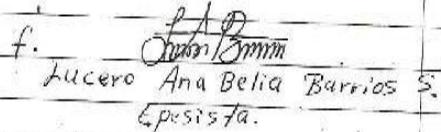 f.
Lucero Ana Belia Barrios S.
Epesista.